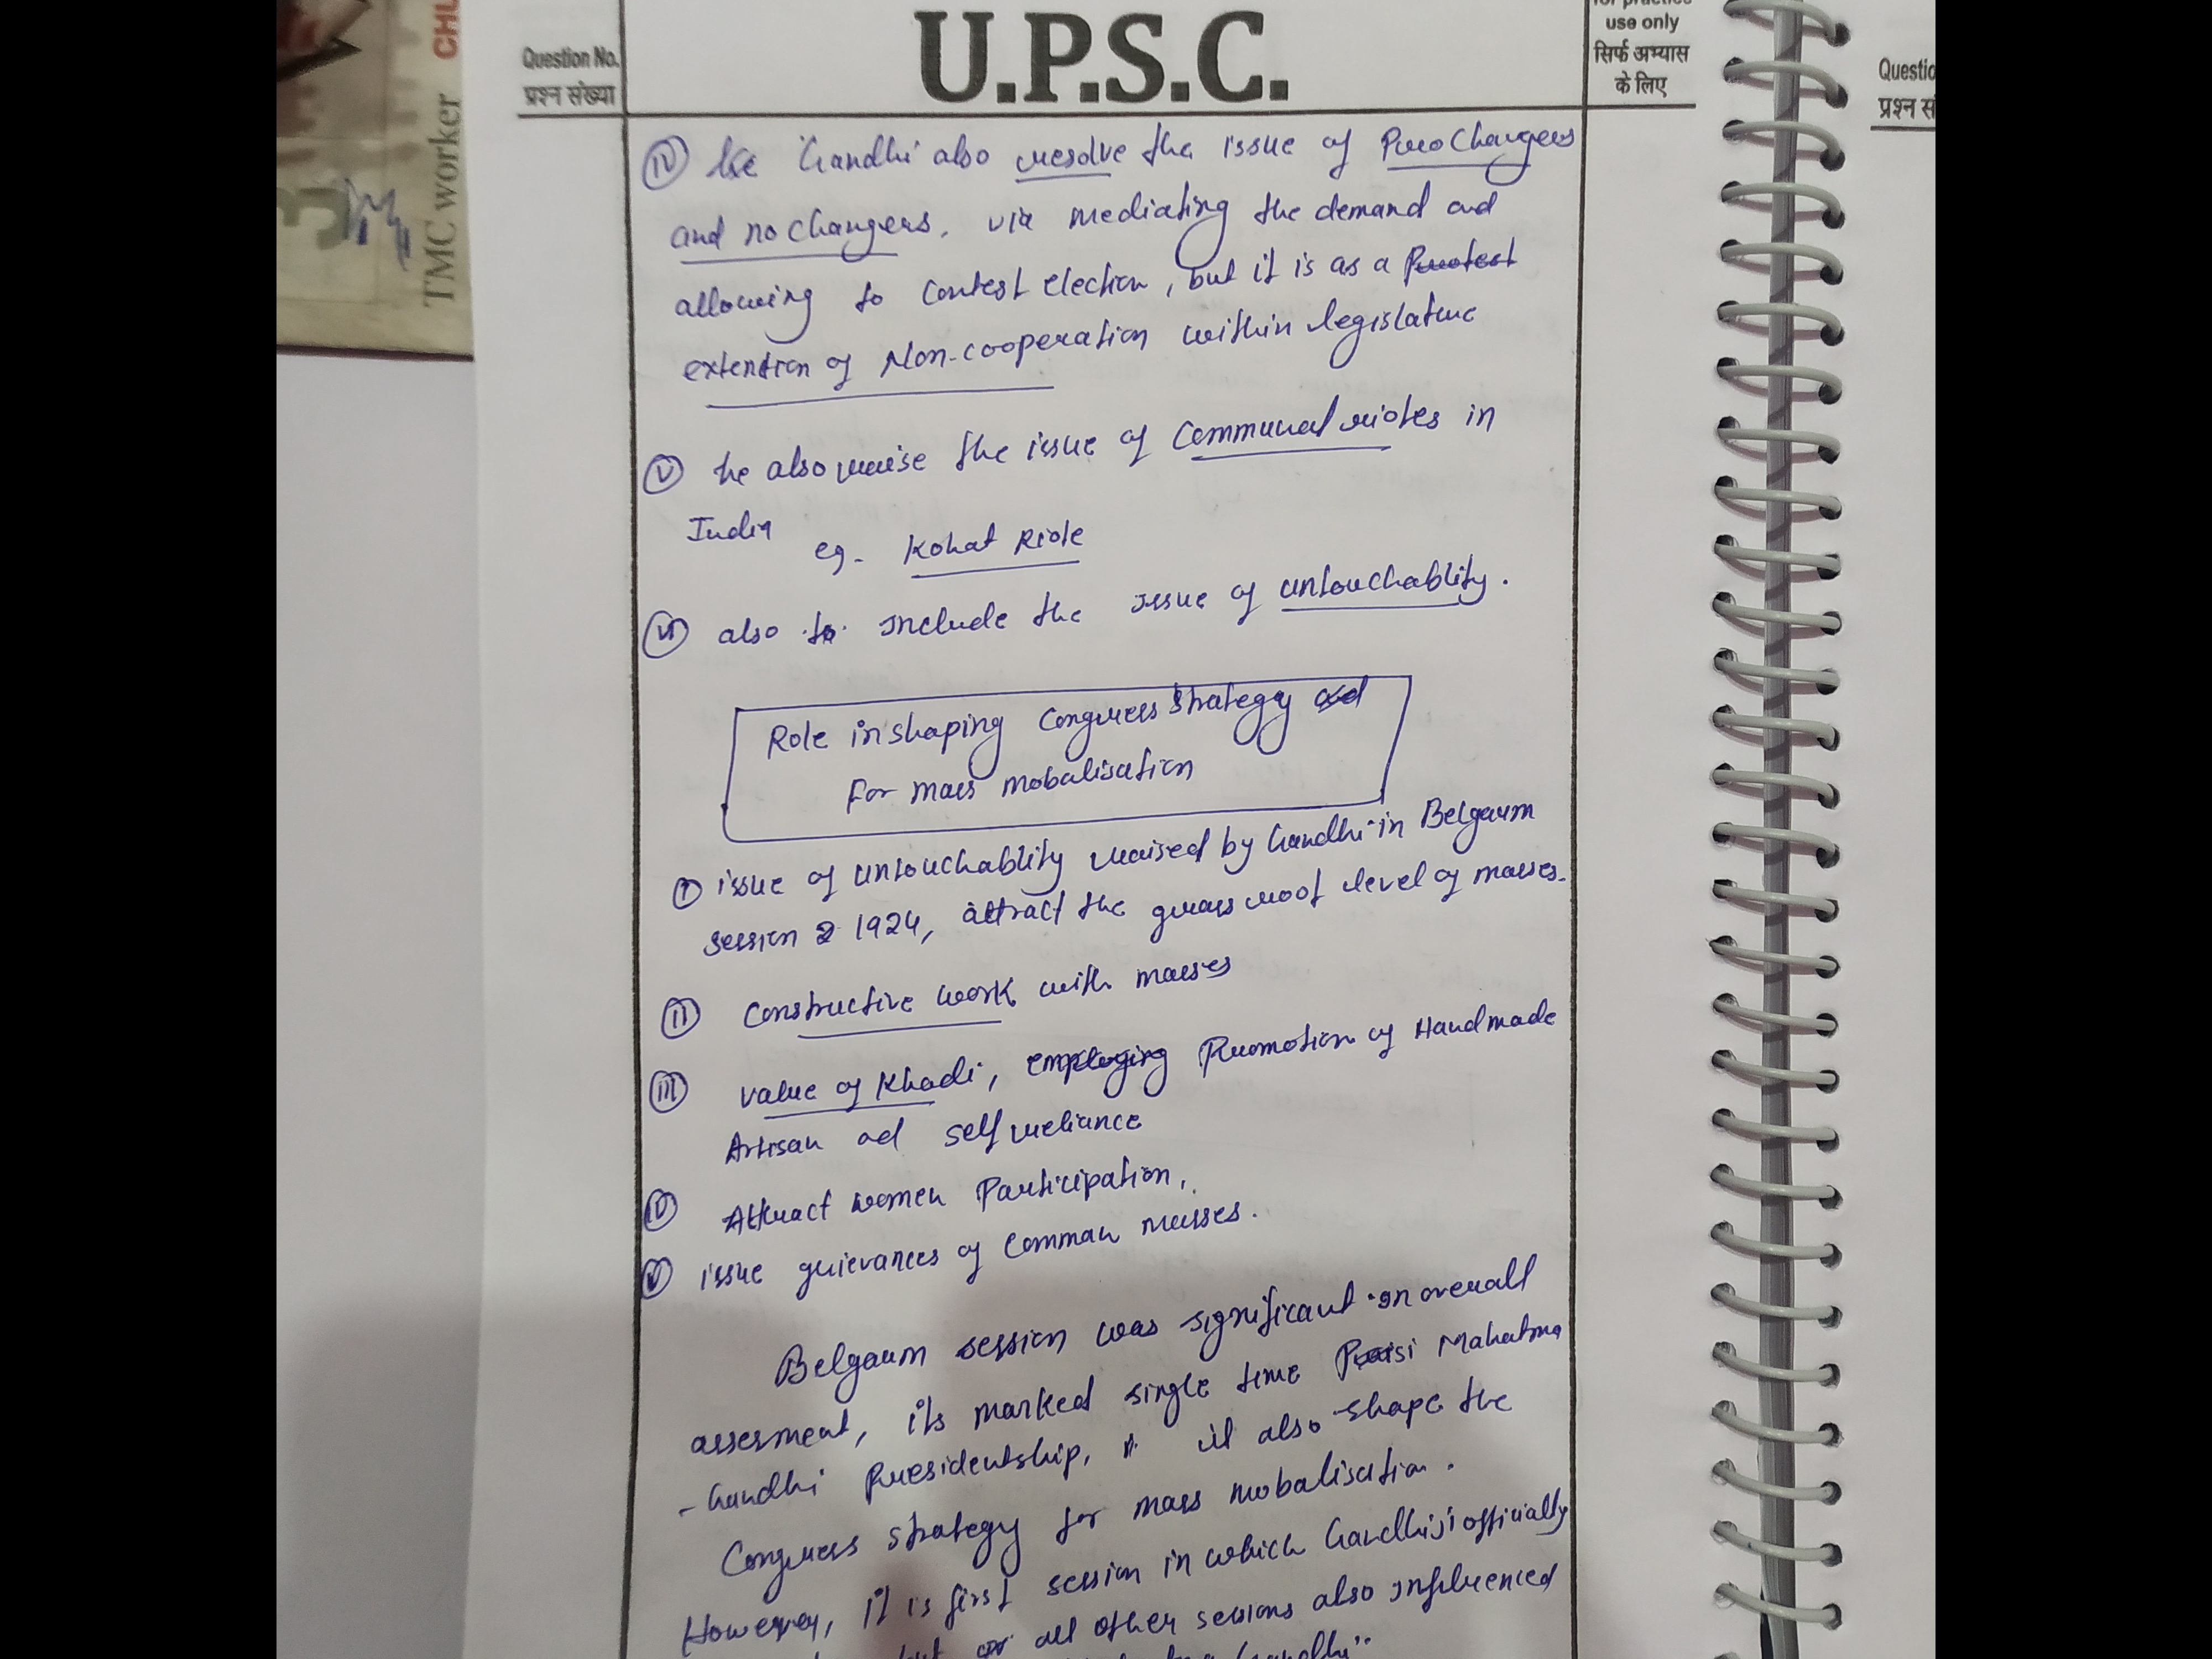 CHU
TMC worker
3
Question No.
प्रश्न संख्या
U.P.S.C.
for practice
use only
सिर्फ अभ्यास
के लिए
Questio
प्रश्न सं
(IV) Gandhi also resolve the issue of Pro Changers
and no changers, via mediating the demand and
allowing to contest election, but it is as a Protest
extention of Non-cooperation within legislature
(V) he also raise the issue of Communal riotes in
India eg- Kohat Riote
(VI) also to include the issue of untouchablity.
Role in shaping Congress strategy and
For mass mobalisation
(I) issue of untouchablity raised by Gandhi in Belgaum
session 1924, attract the grass root level of masses.
(II) Constructive work with masses
(III) value of Khadi, employing Promotion of Handmade
Artisan ad self reliance
(IV) Attract women Participation,
(V) issue grievances of Common masses.
Belgaum session was significant in overall
assesment, its marked single time Mahatma
-Gandhi Presidentship, it also shape the
Congress strategy for mass mobalisation.
However, it is first session in which Gandhiji officially
all other sessions also influenced
Gandhi"